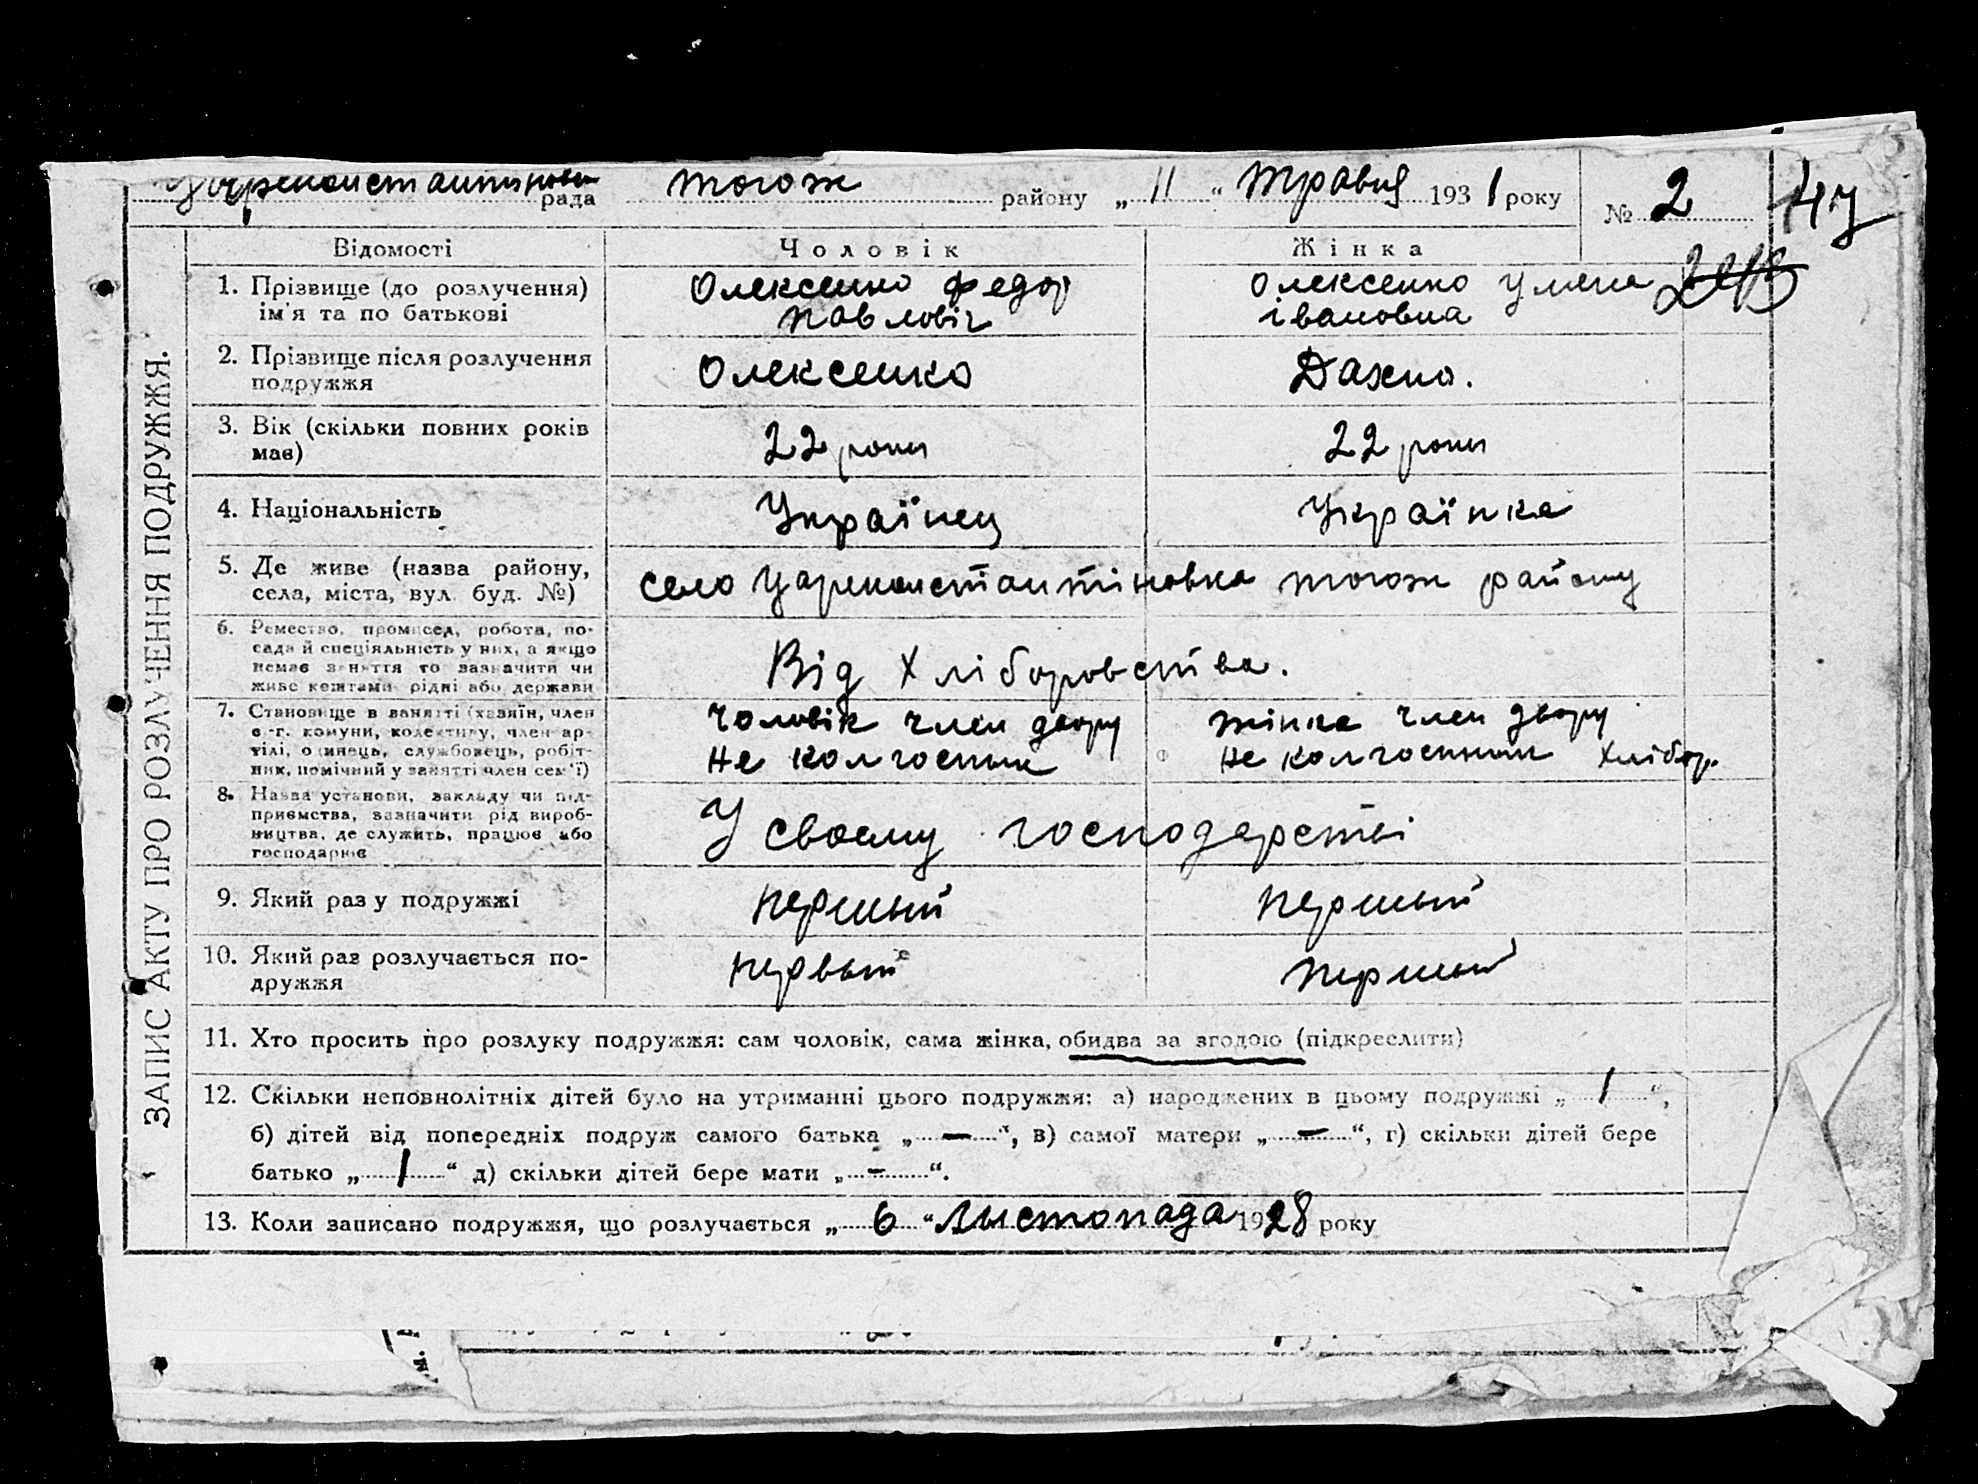 Царенконстантинов рада того ж району „ 11 “ Травня 1931 року № 2
Відомості Чоловік Жінка
1. Прізвище (до розлучення) ім'я та по батькові
Олексенко Федор
Павловіч
Олексенко
івановна
2. Прізвище після розлучення подружжя
Олексенко
Дахно.
3. Вік (скільки повних років має)
22 роки
22 роки
4. Національність
Українец
Українка
5. Де живе (назва району, села, міста, вул. буд. №)
село Царенконстантіновка того ж району
6. Ремество, промисел, робота, посада й спеціяльність у них, а якщо немає заняття то зазначити чи живе коштами рідні або держави
Від Хліборобства.
7. Становище в занятті (хазяїн, член с.-г. комуни, колективу, член артілі, одинець, службовець, робітник, помічний у занятті член сем'ї)
Чоловік член двору
не колгоспник
жінка член двору
не колгоспник Хлібор.
8. Назва установи, закладу чи підприємства, зазначити рід виробництва, де служить, працює або господарює
У своєму господарстві
9. Який раз у подружжі
першый
першый
10. Який раз розлучається подружжя
первый
першый
11. Хто просить про розлуку подружжя: сам чоловік, сама жінка, обидва за згодою (підкреслити)
12. Скільки неповнолітніх дітей було на утриманні цього подружжя: а) народжених в цьому подружжі „ 1 “,
б) дітей від попередніх подруж самого батька „ — “, в) самої матери „ — “, г) скільки дітей бере
батько „ 1 “ д) скільки дітей бере мати „ - “.
13. Коли записано подружжя, що розлучається „ 6 “ Лыстопада 1928 року
ЗАПИС АКТУ ПРО РОЗЛУЧЕННЯ ПОДРУЖЖЯ.